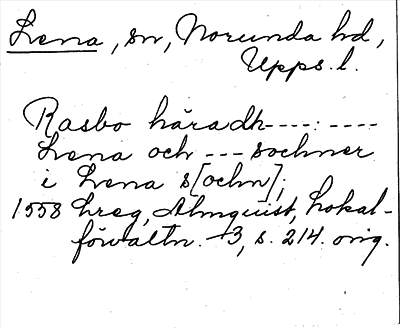 Lena, sn, Norunda hd,
Upps. l.
Rasbo häradh----:----
Lena och --- sochner
i Lena s[ochn];
1558 hreg, Almquist, Lokal-
förvaltn. 3, s. 214. orig.